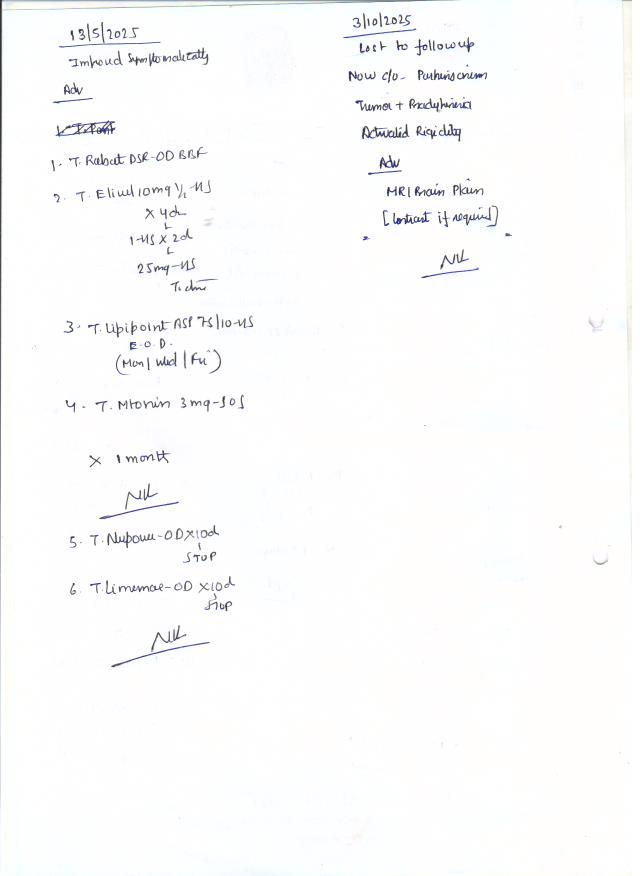 13/5/2025
Improved Symptomatically
Adv
1. T. Rabat DSR-OD BBF
2. T. Eliwel 10mg 1/2 HS
X 4d
1-HS X 2d
25mg-HS
3. T. Lipipoint ASP 75/10-HS
E.O.D.
(Mon/Wed/Fri)
4. T. Mtonin 3mg-SOS
X 1 month
5. T. -OD X10d
STOP
6. T. -OD X10d
STOP
3/10/2025
Lost to followup
Now c/o- Parkinsonism
Tremor + Bradykinesia
Rigidity
Adv
MRI Brain Plain
[Contrast if required]